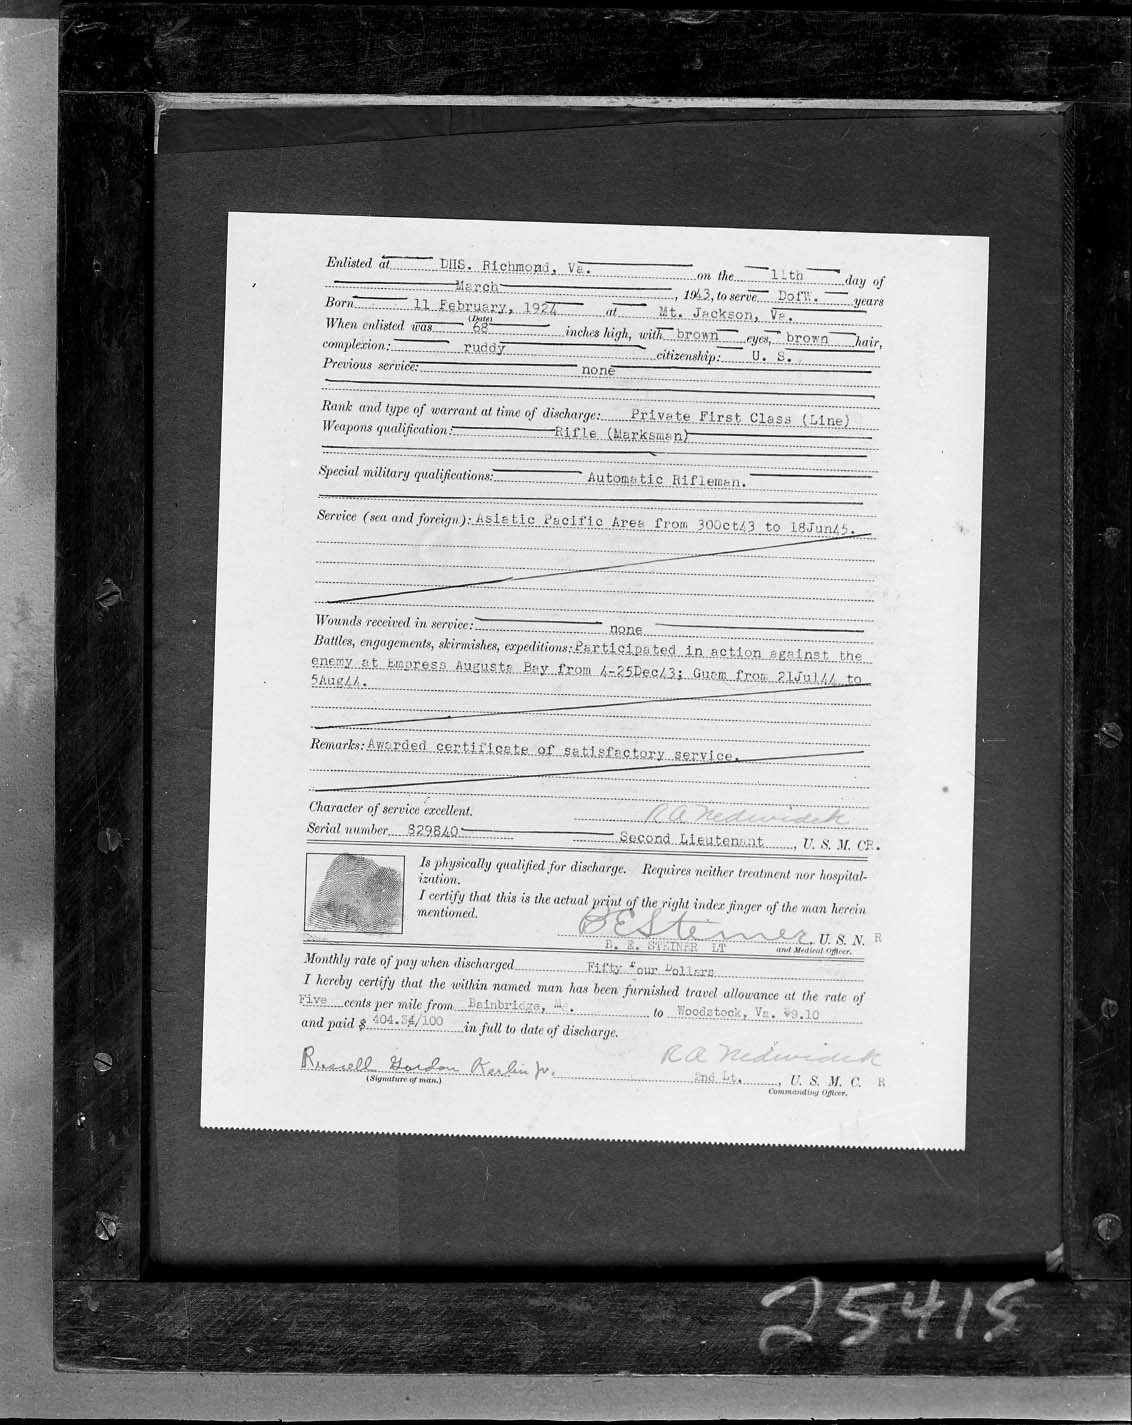 Enlisted at DHS. Richmond, Va. on the 11th day of
March, 1943, to serve DofW. years
Born 11 February, 1924 at Mt. Jackson, Va.
(Date)
When enlisted was 68 inches high, with brown eyes, brown hair,
complexion: ruddy citizenship: U. S.
Previous service: none
Rank and type of warrant at time of discharge: Private First Class (Line)
Weapons qualification: Rifle (Marksman)
Special military qualifications: Automatic Rifleman.
Service (sea and foreign): Asiatic Pacific Area from 30Oct43 to 18Jun45.
Wounds received in service: none
Battles, engagements, skirmishes, expeditions: Participated in action against the
enemy at Empress Augusta Bay from 4-25Dec43; Guam from 21Jul44 to
5Aug44.
Remarks: Awarded certificate of satisfactory service.
Character of service excellent.
R A Nedwidek
Serial number 829840 Second Lieutenant, U. S. M. CR.
Is physically qualified for discharge. Requires neither treatment nor hospital-
ization.
I certify that this is the actual print of the right index finger of the man herein
mentioned.
B E Steiner, U. S. N. R
B. E. STEINER LT and Medical Officer.
Monthly rate of pay when discharged Fifty four Dollars
I hereby certify that the within named man has been furnished travel allowance at the rate of
Five cents per mile from Bainbridge, Md. to Woodstock, Va. $9.10
and paid $ 404.34/100 in full to date of discharge.
R A Nedwidek
Russell Gordon Kerlin Jr. 2nd Lt., U. S. M. C. R
(Signature of man.) Commanding Officer.
25415